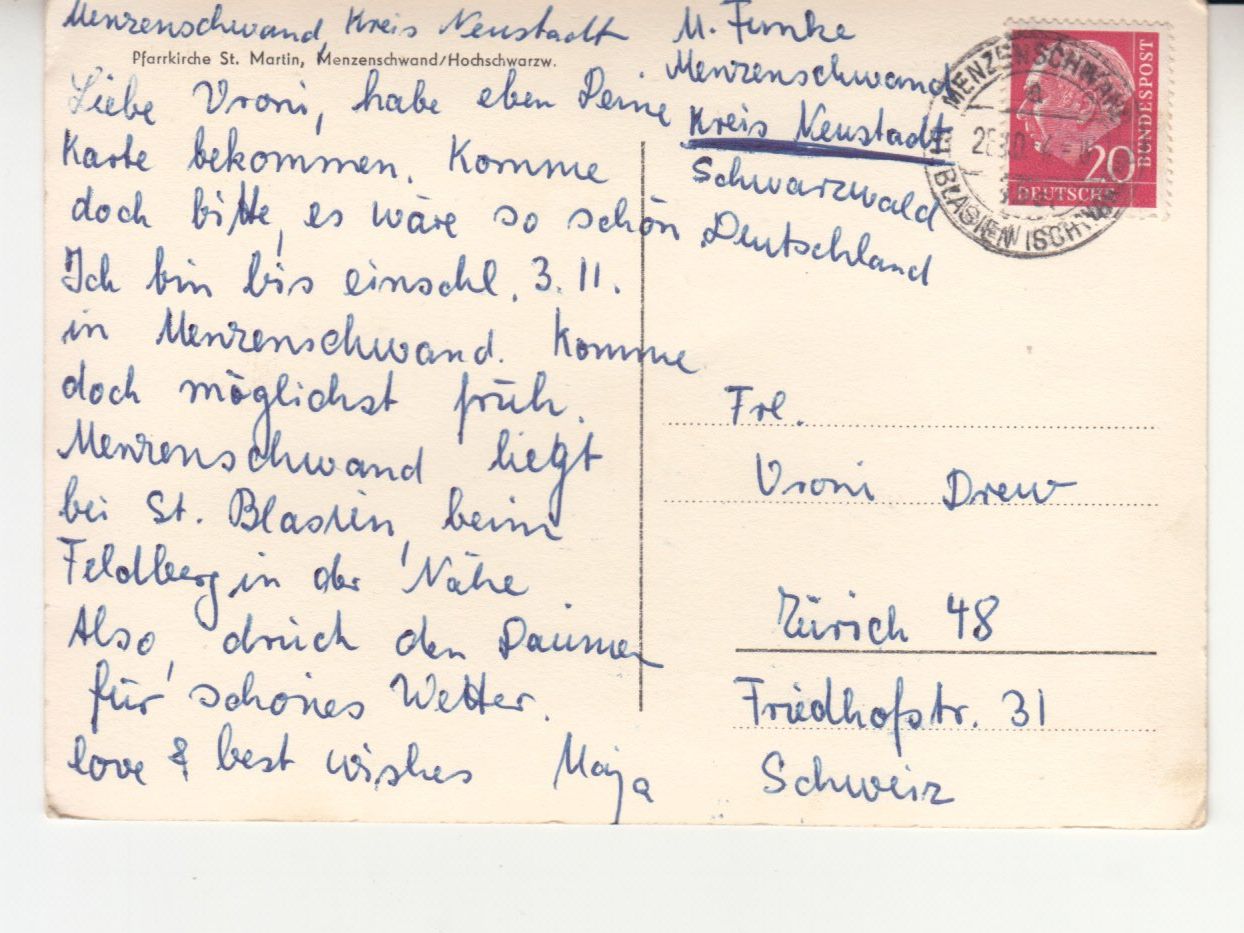 Menzenschwand, Kreis Neustadt
Pfarrkirche St. Martin, Menzenschwand/Hochschwarzw.
Liebe Vroni, habe eben Deine
Karte bekommen. Komme
doch bitte, es wäre so schön.
Ich bin bis einschl. 3. 11.
in Menzenschwand. Komme
doch möglichst früh.
Menzenschwand liegt
bei St. Blasien, beim
Feldberg in der Nähe.
Also, drück den Daumen
für schönes Wetter.
love & best wishes Maja
M. Funke
Menzenschwand
Kreis Neustadt
Schwarzwald
Deutschland
MENZENSCHWAND
BLASIEN (SCHWARZW
20
DEUTSCHE
BUNDESPOST
Frl.
Vroni Drew
Zürich 48
Friedhofstr. 31
Schweiz